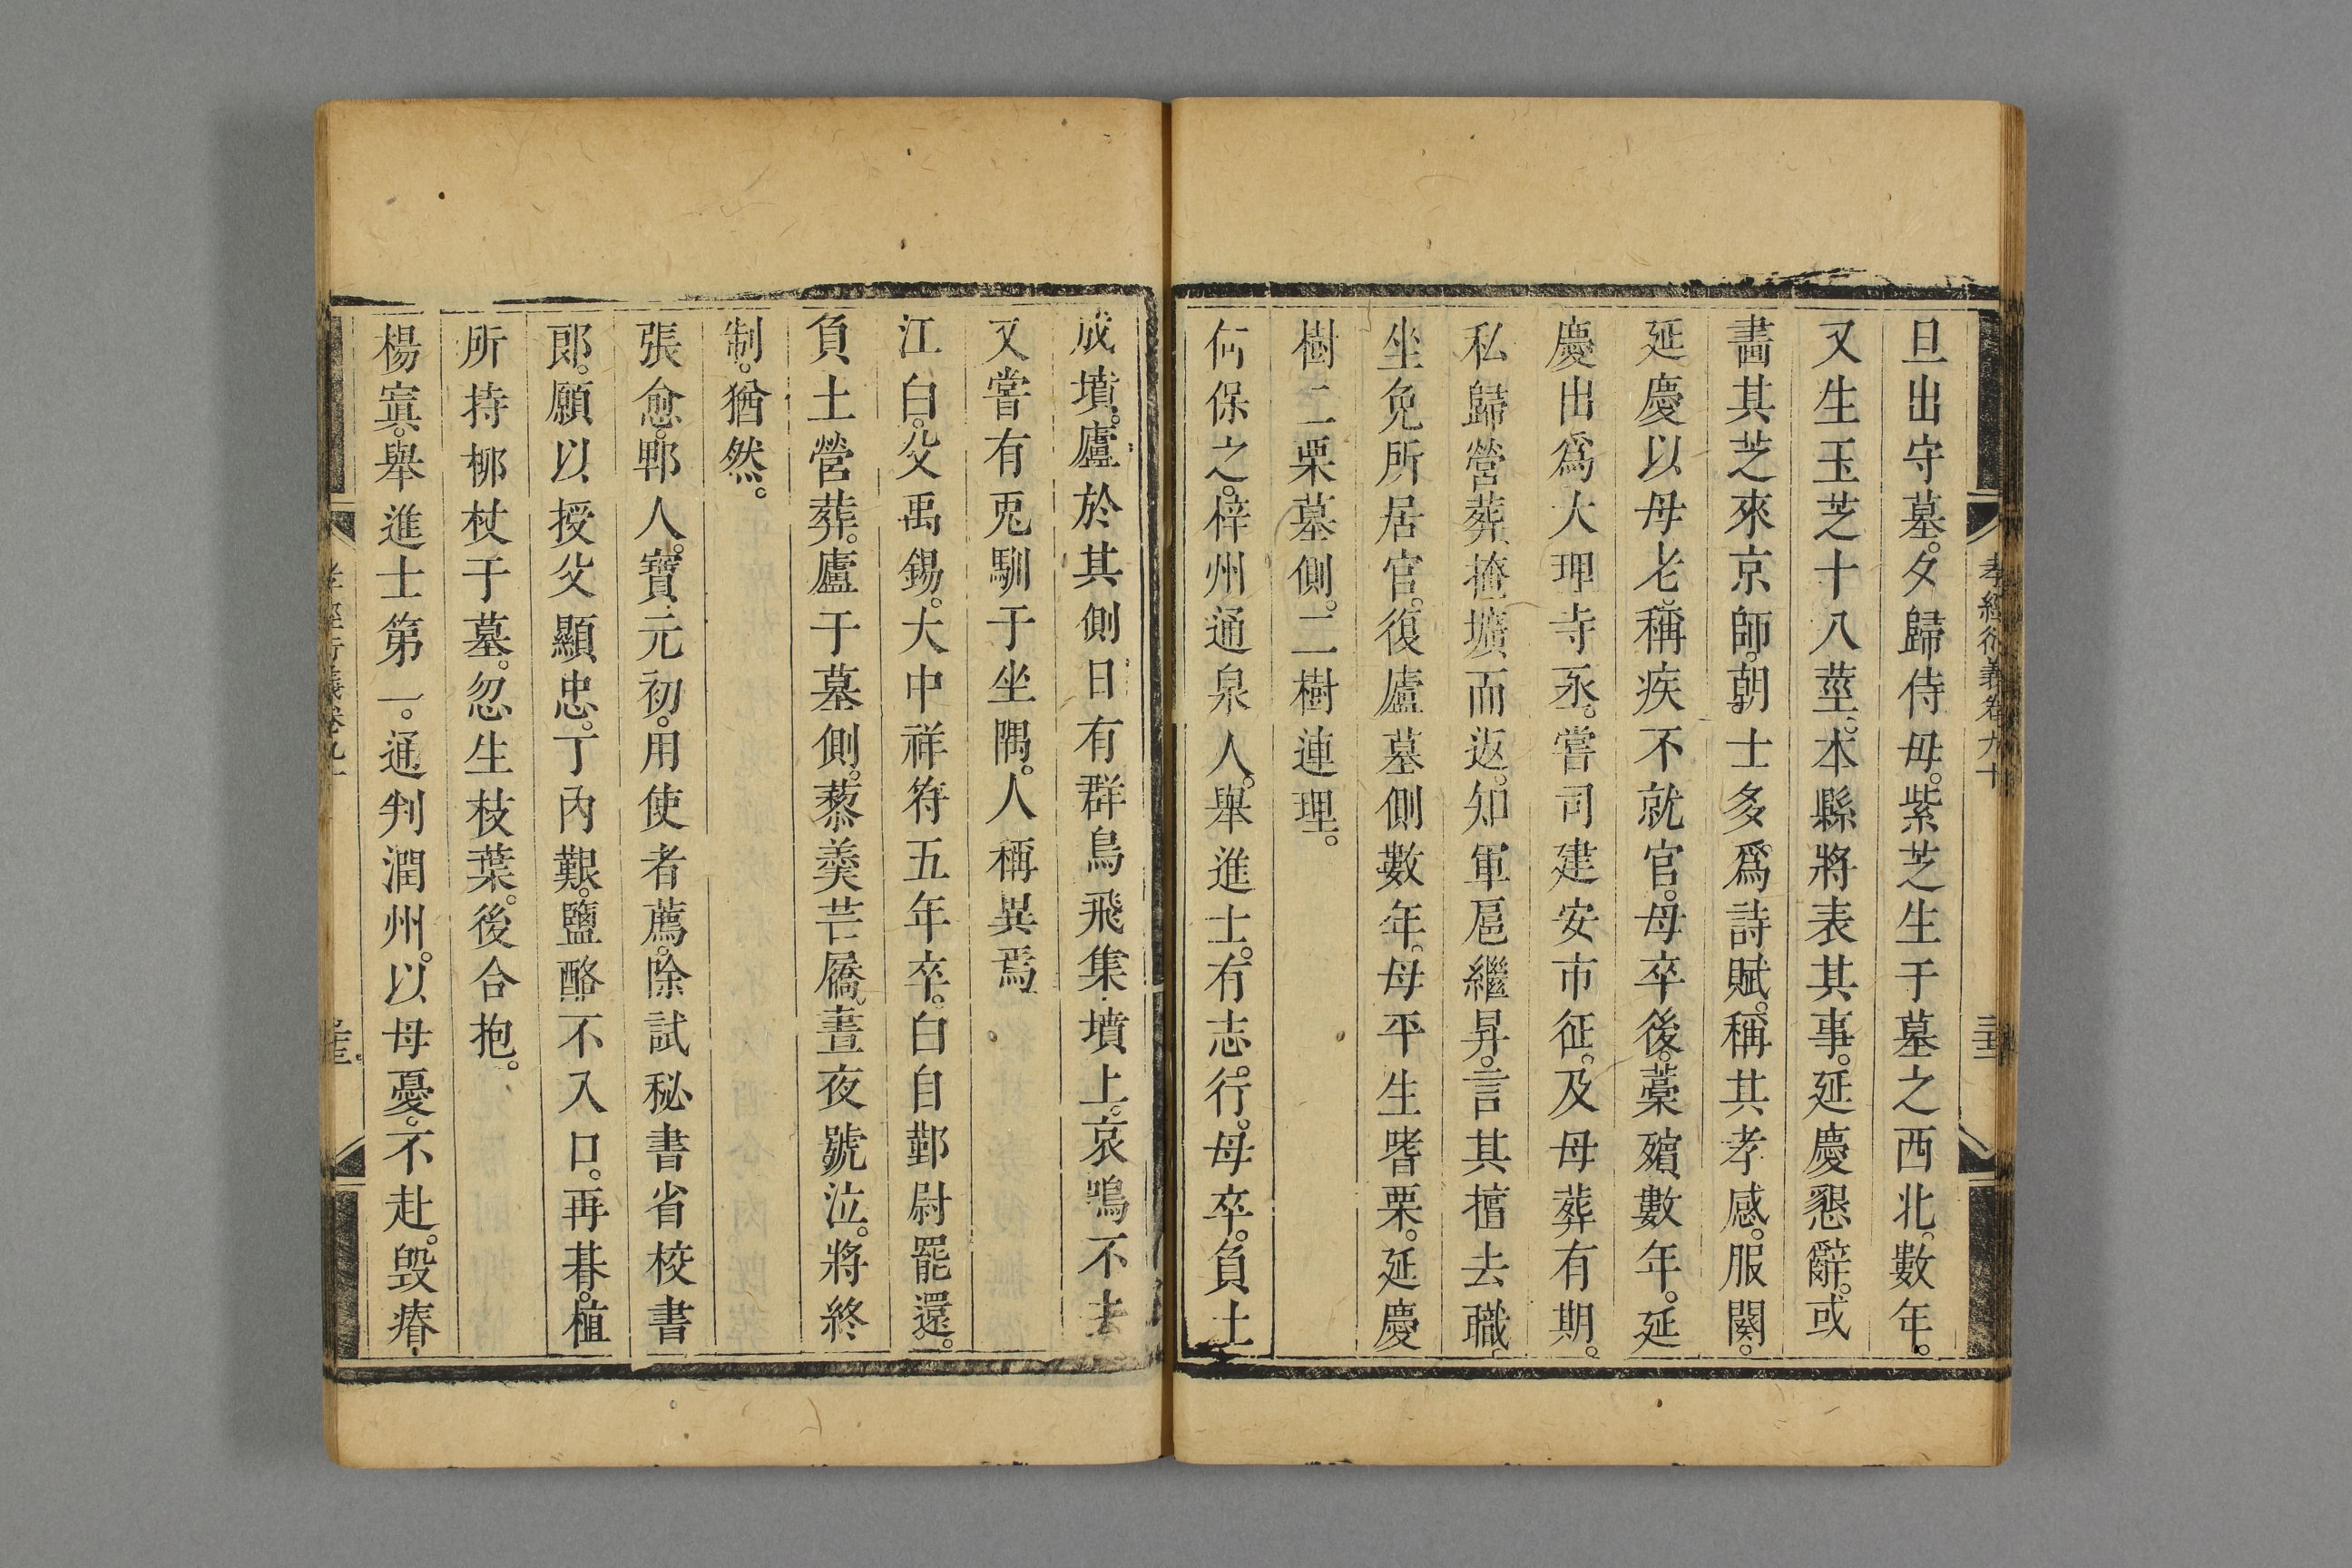 孝經衍義卷九十
旦出守墓。夕歸侍母。紫芝生于墓之西北。數年。
又生玉芝十八莖。本縣將表其事。延慶懇辭。或
畫其芝來京師。朝士多爲詩賦。稱其孝感。服闋。
延慶以母老。稱疾不就官。母卒後。藁殯數年。延
慶出爲大理寺丞。嘗司建安市征。及母葬有期。
私歸營葬。掩壙而返。知軍扈繼昇。言其擅去職。
坐免所居官。復廬墓側數年。母平生嗜栗。延慶
樹二栗墓側。二樹連理。
何保之。梓州通泉人。舉進士。有志行。母卒。負土
成墳。廬於其側。日有群鳥飛集墳上。哀鳴不去
又嘗有兎馴于坐隅。人稱異焉
江白。父禹錫。大中祥符五年卒。白自鄞尉罷還。
負土營葬。廬于墓側。藜羹芒屩。晝夜號泣。將終
制。猶然。
張愈。郫人。寶元初。用使者薦。除試秘書省校書
郎。願以授父顯忠。丁內艱。鹽酪不入口。再朞。植
所持栁杖于墓。忽生枝葉。後合抱。
楊寘。舉進士第一。通判潤州。以母憂。不赴。毀瘠